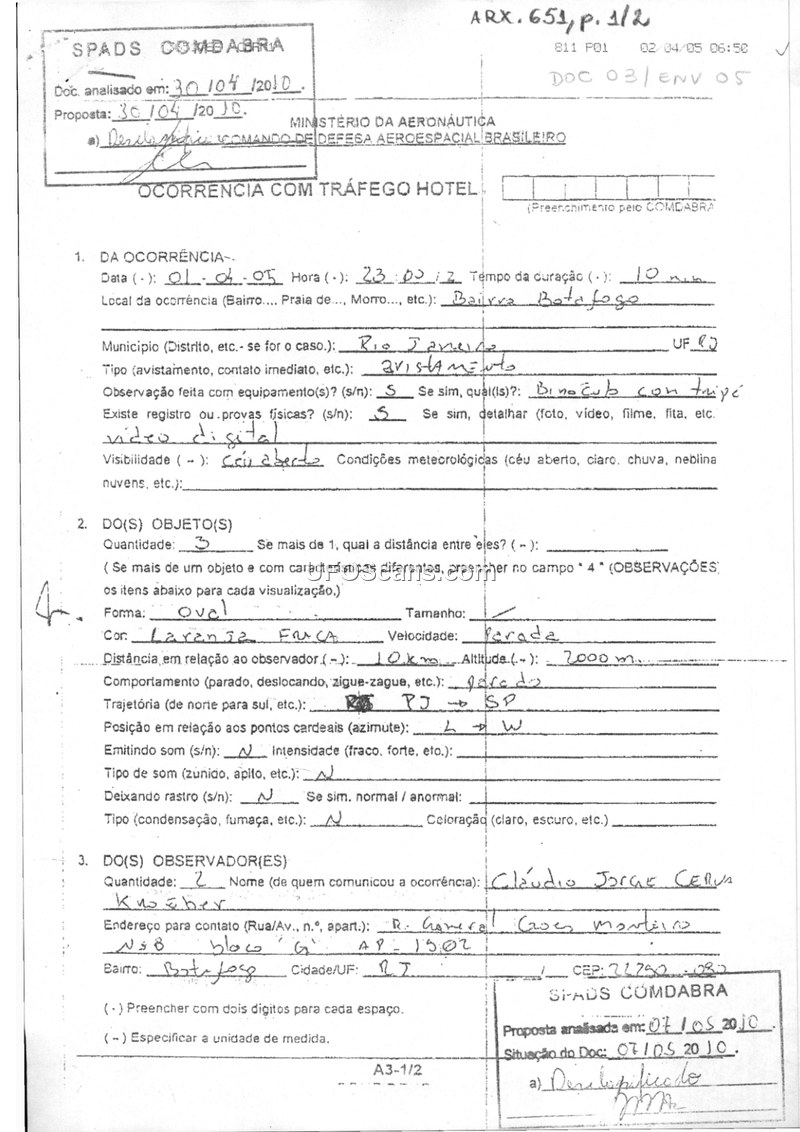 ARX. 651, p. 1/2
811 P01 02/04/05 06:50
DOC 03/ENV 05
SPADS COMDABRA
Doc. analisado em: 30/04/2010.
Proposta: 30/04/2010.
a) Desclassificar
MINISTÉRIO DA AERONÁUTICA
COMANDO DE DEFESA AEROESPACIAL BRASILEIRO
OCORRÊNCIA COM TRÁFEGO HOTEL
(Preenchimento pelo COMDABRA
1. DA OCORRÊNCIA
Data (·): 01-04-05 Hora (·): 23:00:12 Tempo da duração (·): 10 min
Local da ocorrência (Bairro..., Praia de..., Morro..., etc.): Bairro Botafogo
Município (Distrito, etc.- se for o caso.): Rio Janeiro UF RJ
Tipo (avistamento, contato imediato, etc.): avistamento
Observação feita com equipamento(s)? (s/n): S Se sim, qual(is)?: Binóculo com tripé
Existe registro ou provas físicas? (s/n): S Se sim, detalhar (foto, vídeo, filme, fita, etc.
video digital
Visibilidade ( ~ ): céu aberto Condições meteorológicas (céu aberto, claro, chuva, neblina
nuvens, etc.):
2. DO(S) OBJETO(S)
Quantidade: 3 Se mais de 1, qual a distância entre eles? ( ~ ):
( Se mais de um objeto e com características diferentes, preencher no campo " 4 " (OBSERVAÇÕES)
os itens abaixo para cada visualização.)
UFOScans.com
Forma: oval Tamanho: /
Cor: Laranja FRACA Velocidade: Parada
Distância em relação ao observador ( ~ ): 10 km Altitude ( ~ ): 2000 m.
Comportamento (parado, deslocando, zigue-zague, etc.): parado
Trajetória (de norte para sul, etc.): RJ → SP
Posição em relação aos pontos cardeais (azimute): L → W
Emitindo som (s/n): N Intensidade (fraco, forte, etc.):
Tipo de som (zunido, apito, etc.): N
Deixando rastro (s/n): N Se sim, normal / anormal:
Tipo (condensação, fumaça, etc.): N Coloração (claro, escuro, etc.)
3. DO(S) OBSERVADOR(ES)
Quantidade: 2 Nome (de quem comunicou a ocorrência): Cláudio JORGE
Endereço para contato (Rua/Av., n.º, apart.): R. General Goes Monteiro
Nº 8 bloco 'G' AP - 1502
Bairro: Botafogo Cidade/UF: RJ / CEP: 22290-080
( · ) Preencher com dois dígitos para cada espaço.
( ~ ) Especificar a unidade de medida.
A3-1/2
SPADS COMDABRA
Proposta analisada em: 07/05/2010.
Situação do Doc: 07/05/2010.
a) Desclassificado